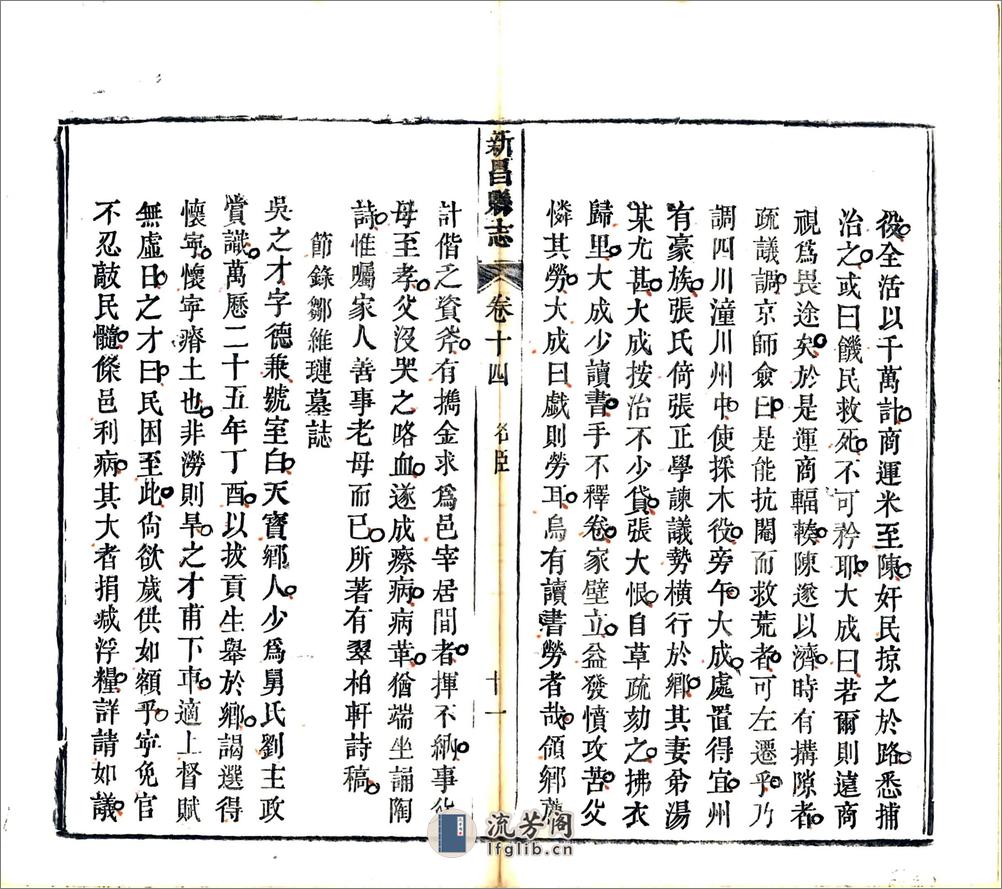 役全活以千萬計商運米至陳奸民掠之於路悉捕
治之或曰饑民救死不可矜耶大成曰若爾則遠商
視爲畏途矣於是運商輻輳陳遂以濟時有搆隙者
疏議調京師僉曰是能抗閹而救荒者可左遷乎乃
調四川潼川州中使採木役旁午大成處置得宜州
有豪族張氏倚張正學諫議勢橫行於鄉其妻弟湯
某尤甚大成按治不少貸張大恨自草疏劾之拂衣
歸里大成少讀書手不釋卷家壁立益發憤攻苦父
憐其勞大成曰戲則勞耳烏有讀書勞者哉領鄉薦
新昌縣志
卷十四
名臣
十一
計偕乏資斧有攜金求爲邑宰居間者揮不納事
母至孝父沒哭之咯血遂成瘵病病革猶端坐誦陶
詩惟囑家人善事老母而已所著有翠柏軒詩稿
節錄鄒維璉墓誌
吳之才字德兼號室白天寶鄉人少爲舅氏劉主政
賞識萬歷二十五年丁酉以拔貢生舉於鄉謁選得
懷寧懷寧瘠土也非澇則旱之才甫下車適上督賦
無虛日之才曰民困至此尙欲歲供如額乎寧免官
不忍敲民髓條邑利病其大者捐减浮糧詳請如議
流芳閣
lfglib.cn